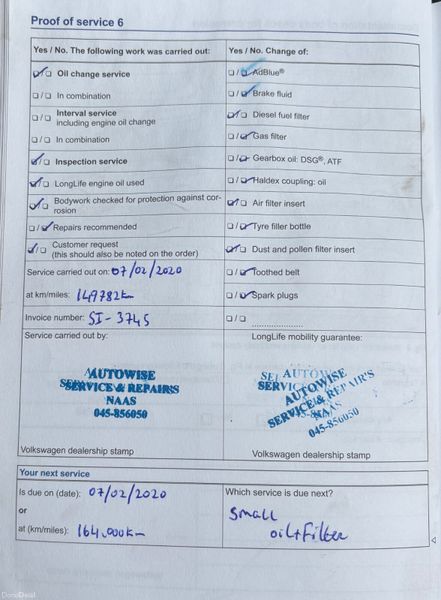 Proof of service 6
Yes / No. The following work was carried out:
Oil change service
In combination
Interval service
including engine oil change
In combination
Inspection service
LongLife engine oil used
Bodywork checked for protection against cor-
rosion
Repairs recommended
Customer request
(this should also be noted on the order)
Service carried out on: 07/02/2020
at km/miles: 149782km
Invoice number: SI-3745
Yes / No. Change of:
AdBlue®
Brake fluid
Diesel fuel filter
Gas filter
Gearbox oil: DSG®, ATF
Haldex coupling: oil
Air filter insert
Tyre filler bottle
Dust and pollen filter insert
Toothed belt
Spark plugs
Service carried out by:
AUTOWISE
SERVICE & REPAIR'S
NAAS
045-856050
Volkswagen dealership stamp
LongLife mobility guarantee:
AUTOWISE
SERVICE & REPAIR'S
NAAS
045-856050
Volkswagen dealership stamp
Your next service
Is due on (date): 07/02/2020
or
at (km/miles): 164,000km
Which service is due next?
Small
oil+filter
DoneDeal